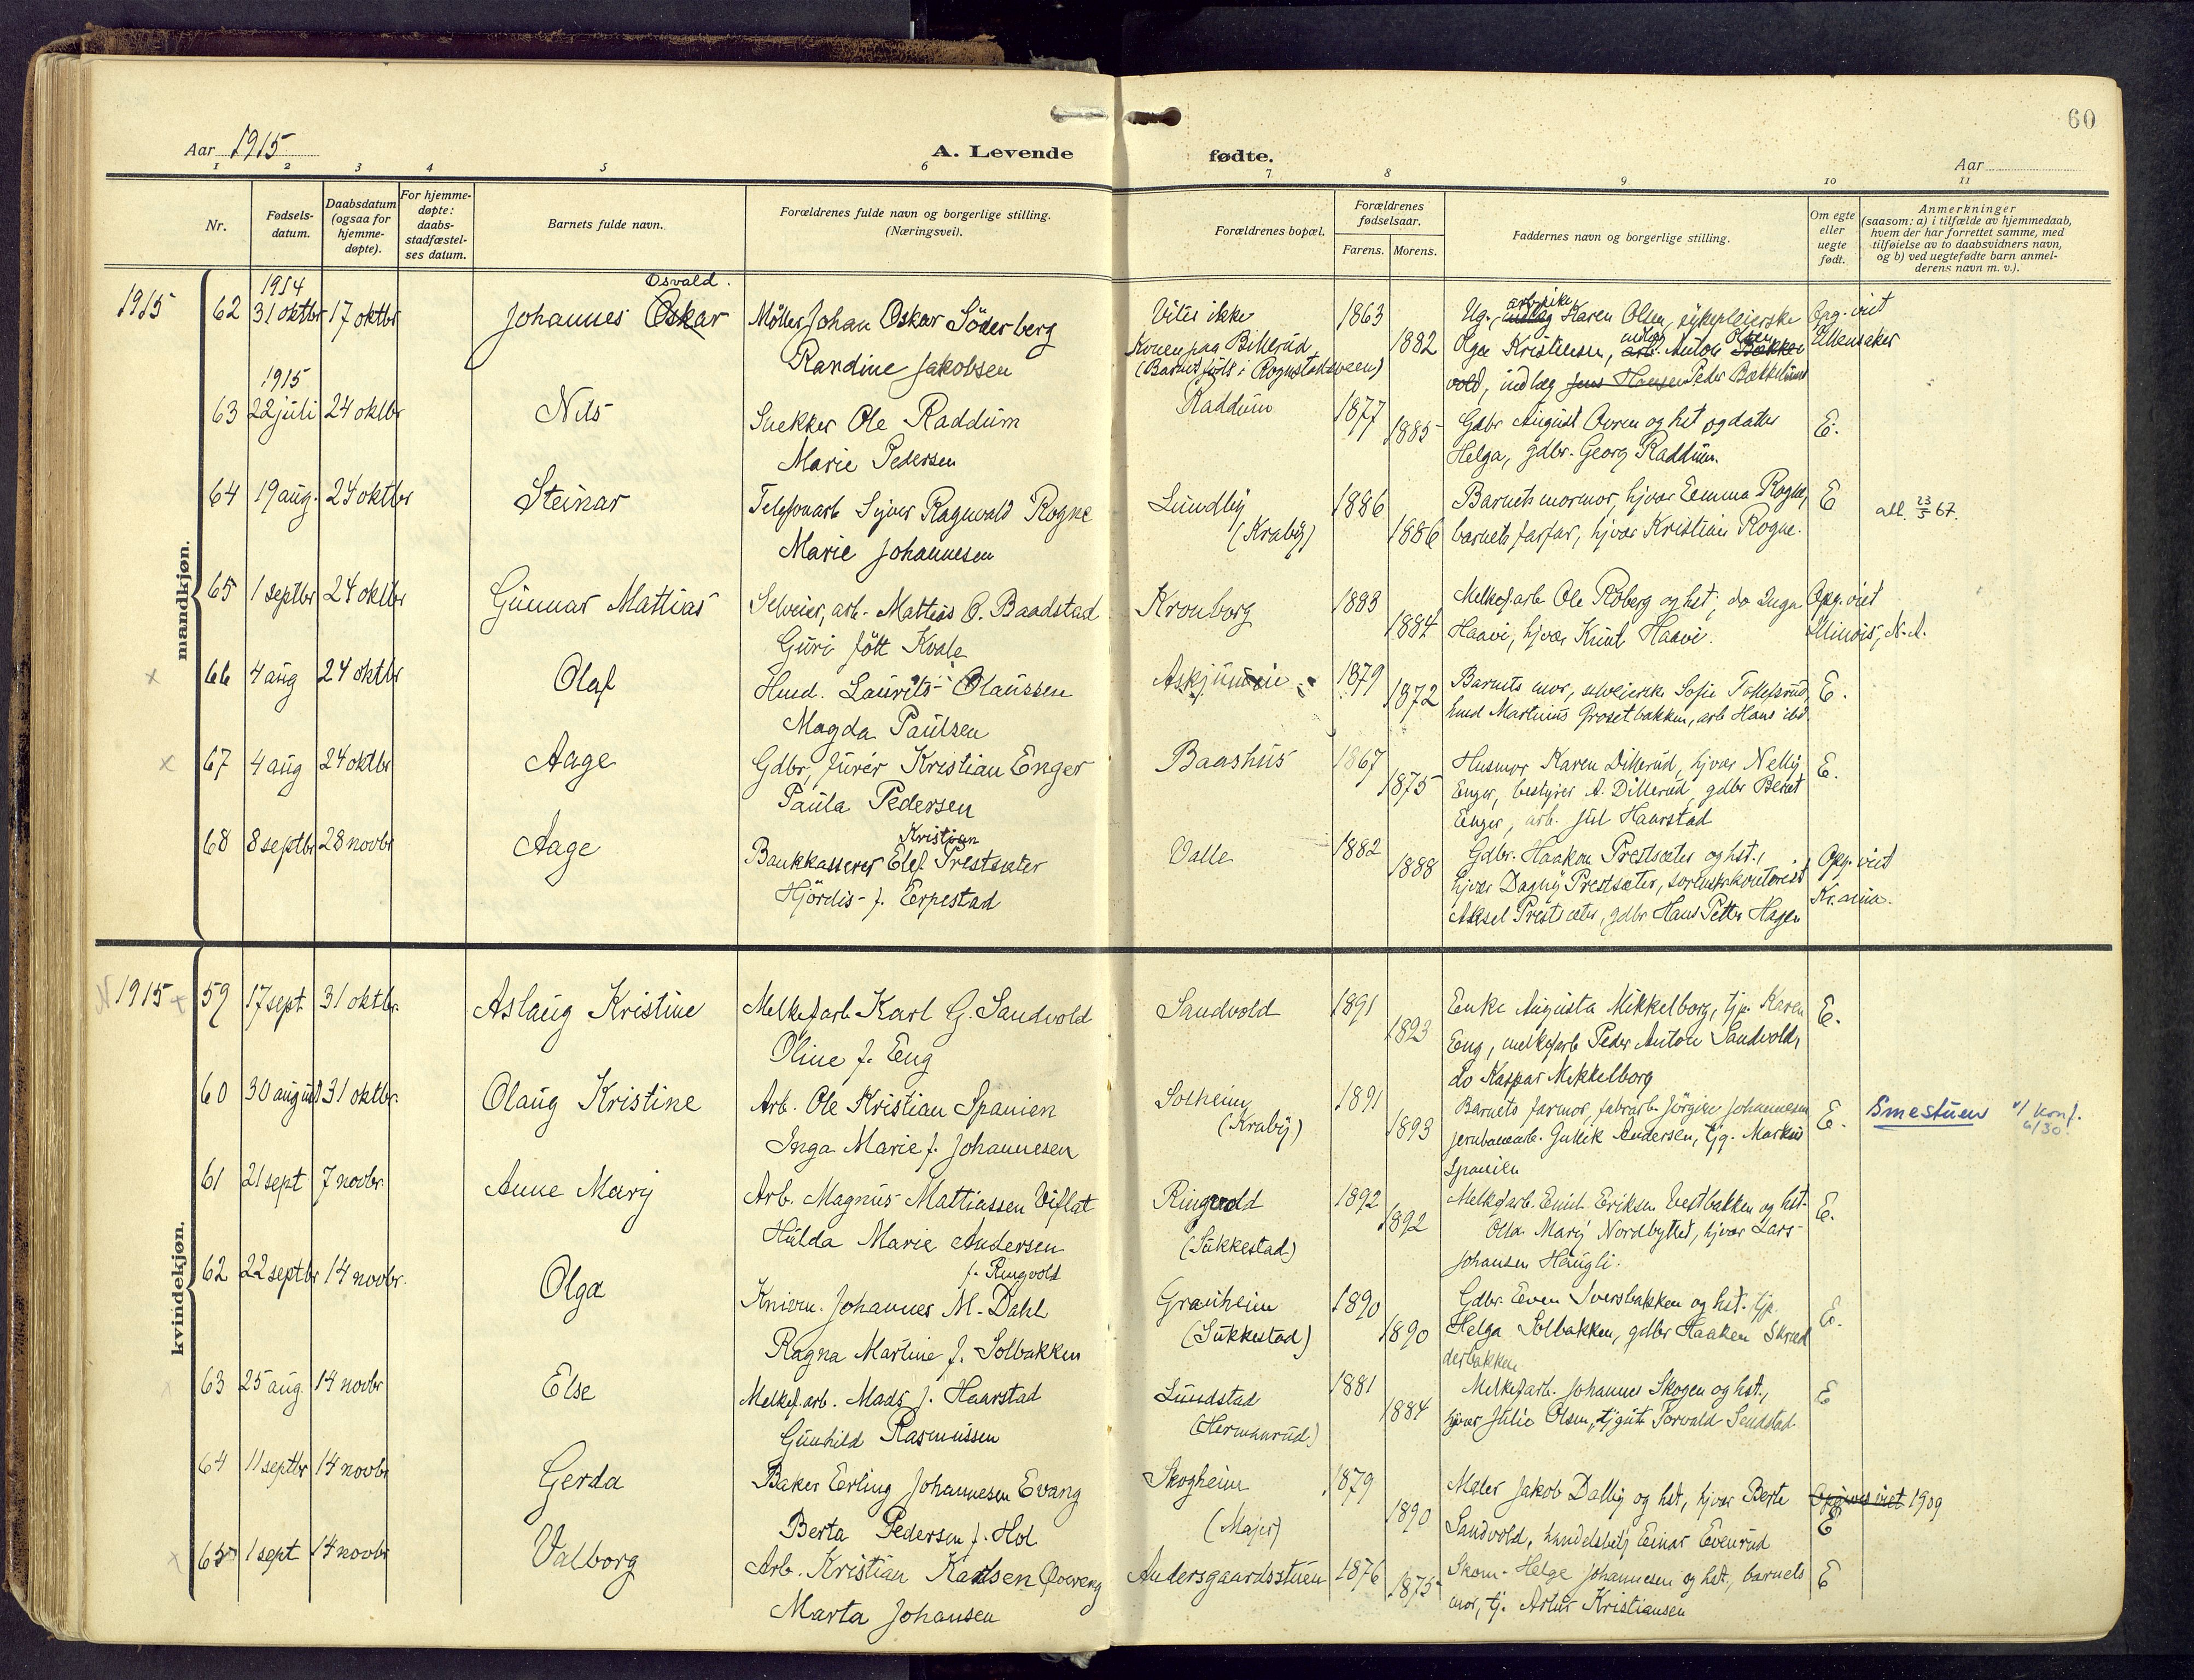 60
Aar 1915
A. Levende fødte.
Aar
1 2 3 4 5 6 7 8 9 10 11
Nr.
Fødsels-
datum.
Daabsdatum
(ogsaa for
hjemme-
døpte).
For hjemme-
døpte:
daabs-
stadfæstel-
ses datum.
Barnets fulde navn.
Forældrenes fulde navn og borgerlige stilling.
(Næringsvei).
Forældrenes bopæl.
Forældrenes
fødselsaar.
Farens. Morens.
Faddernes navn og borgerlige stilling.
Om egte
eller
uegte
født.
Anmerkninger
(saasom: a) i tilfælde av hjemmedaab,
hvem der har forrettet samme, med
tilføielse av to daabsvidners navn,
og b) ved uegtefødte barn anmel-
derens navn m. v.).
mandkjøn.
1915 62 1914 31 oktbr 17 oktbr Johannes Oskar Osvald.
Møller Johan Oskar Söderberg
Randine Jakobsen
Vites ikke
Konen paa Billerud
(Barnet født i Rognstadsveen)
1863 1882
Ug., arb.pike Karen Olsen, sykepleierske
Olga Kristensen, indlæg Anton Olsen
vold, indlæg Jens Hansen Peder Bækkelund
Opg. viet
Ullensaker
63 1915 22 juli 24 oktbr Nils
Snekker Ole Raddum
Marie Pedersen
Raddum 1877 1885
Gdbr August Ovren og hst og datter
Helga, gdbr. Georg Raddum.
E.
64 19 aug. 24 oktbr Steinar
Telefonarb Syver Ragnvald Rogne
Marie Johannesen
Lundby
(Kraby)
1886 1886
Barnets mormor, hjvær Emma Rogne,
barnets farfar, hjvær Kristian Rogne.
E
att. 23/5 67.
65 1 septbr 24 oktbr Gunnar Mattias
Selveier, arb. Mattias O. Baadstad
Guri født Kvale
Kronborg 1883 1884
Melkef.arb Ole Roberg og hst, do Inga
Haavi, hjvær Knut Haavi.
Opg. viet
Illinois, N. A.
x 66 4 aug 24 oktbr Olaf
Husmd. Laurits Olaussen
Magda Paulsen
1879 1872
Barnets mor, selveierske Sofie Tollefsrud,
husmd Martinius Prosetbakken, arb Hans ibd.
E.
x 67 4 aug 24 oktbr Aage
Gdbr, furér Kristian Enger
Paula Pedersen
Baashus 1867 1875
Husmor Karen Dillerud, hjvær Nelly
Enger, bestyrer A. Dillerud, gdbr Bernt
Enger, arb. Juul Haarstad
E.
68 8 septbr 28 novbr Aage
Bankkasserer Elef Kristian Prestsæter
Hjördis f. Erpestad
Valle 1882 1888
Gdbr. Haakon Prestsæter og hst.,
hjvær Dagny Prestsæter, sorenskr.kontorist
Aksel Prestsæter, gdbr Hans Petter Hagen
Opg. viet
Kr.ania.
kvindekjøn.
1915 x 59 17 sept 31 oktbr. Aslaug Kristine
Melkefarb Karl G. Sandvold
Oline f. Eng
Sandvold 1891 1893
Enke Augusta Mikkelborg, tjp. Karen
Eng, melkefarb Peder Anton Sandvold,
do Kaspar Mikkelborg
E.
60 30 august 31 oktbr. Olaug Kristine
Arb. Ole Kristian Spanien
Inga Marie f. Johannesen
Solheim
(Kraby)
1891 1893
Barnets farmor, fabrarb. Jørgine Johannesen
jernbanearb. Gulik Andersen, tjg. Markus
Spanien
E.
Smestuen v/ konf. 6/30.
61 21 sept 7 novbr. Anne Mary
Arb. Magnus Mattiassen Viflat
Hulda Marie Andersen
f. Ringvold
Ringvold
(Sukkestad)
1892 1892
Melkefarb. Emil Eriksen Vestbakken og hst.
Olla Mary Nordbyttet, hjvær Lars
Johansen Haugli.
E.
62 22 septbr 14 novbr. Olga
Johannes M. Dahl
Ragna Martine f. Solbakken
Granheim
(Sukkestad)
1890 1890
Gdbr. Even Iversbakken og hst. tjp.
Helga Solbakken, gdbr Haaken Skræd
derbakken
E.
63 25 aug. 14 novbr Else
Melkef.arb. Mads J. Haarstad
Gunhild Rasmussen
Lundstad
(Hermanrud)
1881 1884
Melkefarb. Johannes Skogen og hst.,
hjvær Julie Olsen, tjgut Torvald Sendstad
E
64 11 septbr 14 novbr Gerda
Baker Erling Johannesen Evang
Berta Pedersen f. Hol
Skogheim
(Majer)
1879 1890
Maler Jakob Dalby og hst, hjvær Berte
Sandvold, handelsbetj Einar Evenrud
Opgives viet 1909
E
x 65 1 sept 14 novbr Valborg
Arb. Kristian Karlsen Qværeng
Marta Johansen
Andersgaardsstuen 1876 1875
Skom. Helge Johannesen og hst., barnets
mor, tj. Artur Kristiansen
E